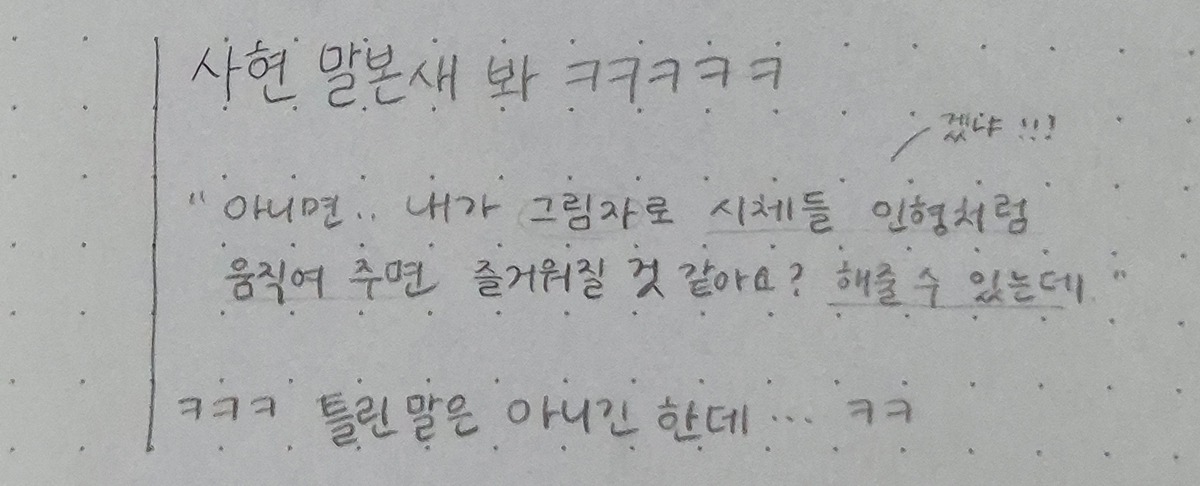 사현 말본새 봐 ㅋㅋㅋㅋㅋ
겠냐 !!!
"아니면.. 내가 그림자로 시체들 인형처럼
움직여 주면 즐거워질 것 같아요? 해줄 수 있는데"
ㅋㅋㅋ 틀린말은 아니긴 한데... ㅋㅋ